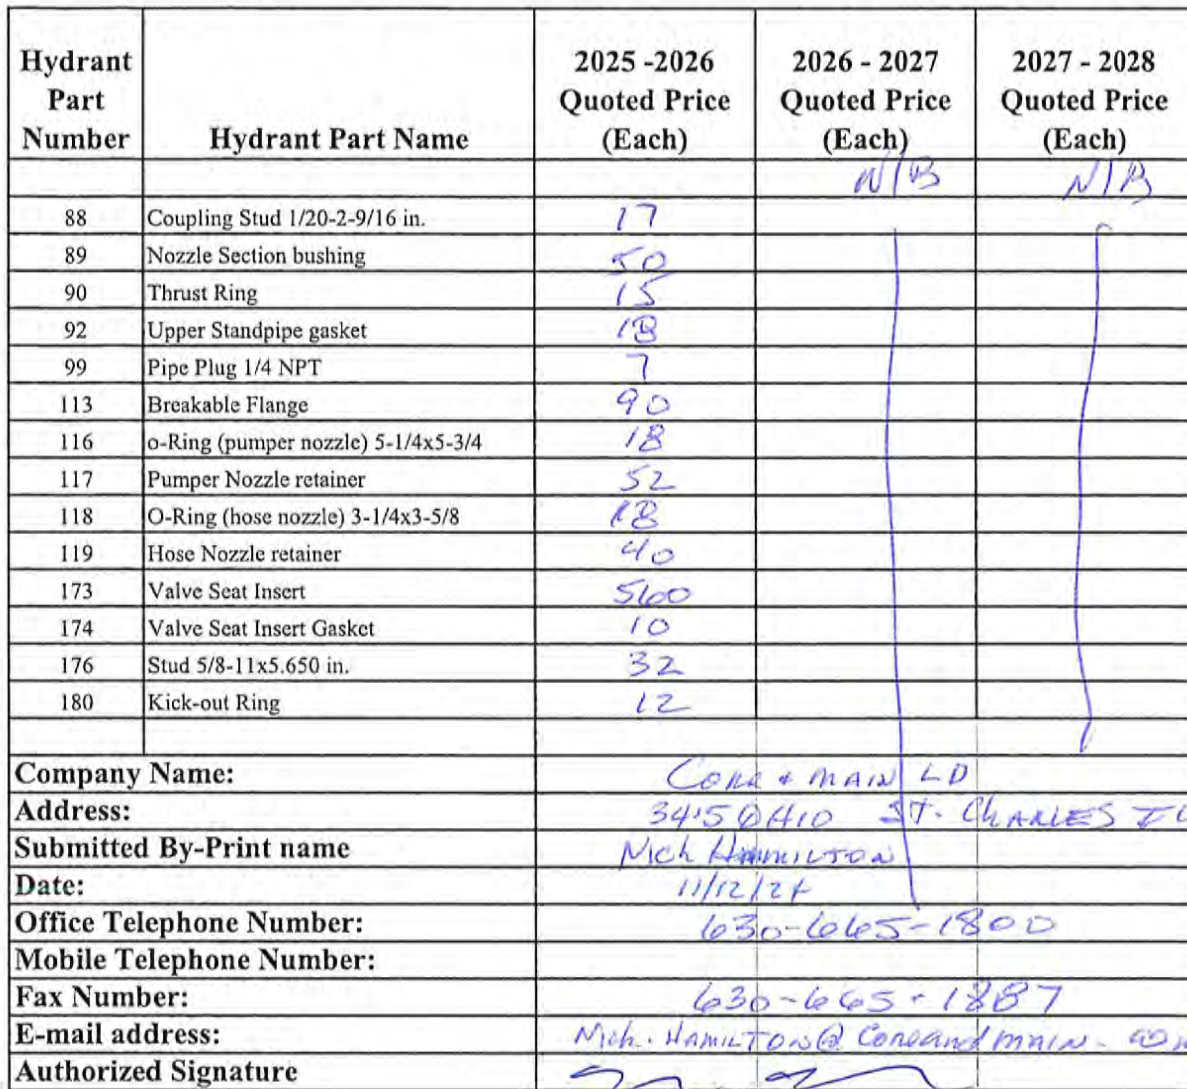 Hydrant Part Number Hydrant Part Name 2025 -2026 Quoted Price (Each) 2026 - 2027 Quoted Price (Each) 2027 - 2028 Quoted Price (Each)
N/B N/B
88 Coupling Stud 1/20-2-9/16 in. 17
89 Nozzle Section bushing 50
90 Thrust Ring 15
92 Upper Standpipe gasket 18
99 Pipe Plug 1/4 NPT 7
113 Breakable Flange 90
116 o-Ring (pumper nozzle) 5-1/4x5-3/4 18
117 Pumper Nozzle retainer 52
118 O-Ring (hose nozzle) 3-1/4x3-5/8 18
119 Hose Nozzle retainer 40
173 Valve Seat Insert 560
174 Valve Seat Insert Gasket 10
176 Stud 5/8-11x5.650 in. 32
180 Kick-out Ring 12
Company Name: Core & Main
Address: ST. CHARLES IL
Submitted By-Print name Nick HAMILTON
Date: 11/12/24
Office Telephone Number: 630-665-1800
Mobile Telephone Number:
Fax Number: 630-665-1887
E-mail address: Nick.HAMILTON@Coreandmain.com
Authorized Signature